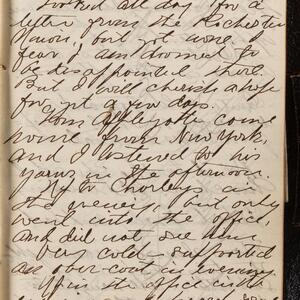 Looked all day for a
letter from the Rochester
Union, but got none. I
fear I am doomed to
be disappointed there.
But I will cherish a hope
for yet a few days.
Tom Applegate came
home from New York,
and I listened to his
yarns in the afternoon.
Up to Chorleys in
the evening, but only
went into the office,
and did not see
Very cold – supported
an over-coat in evening.
in the office with